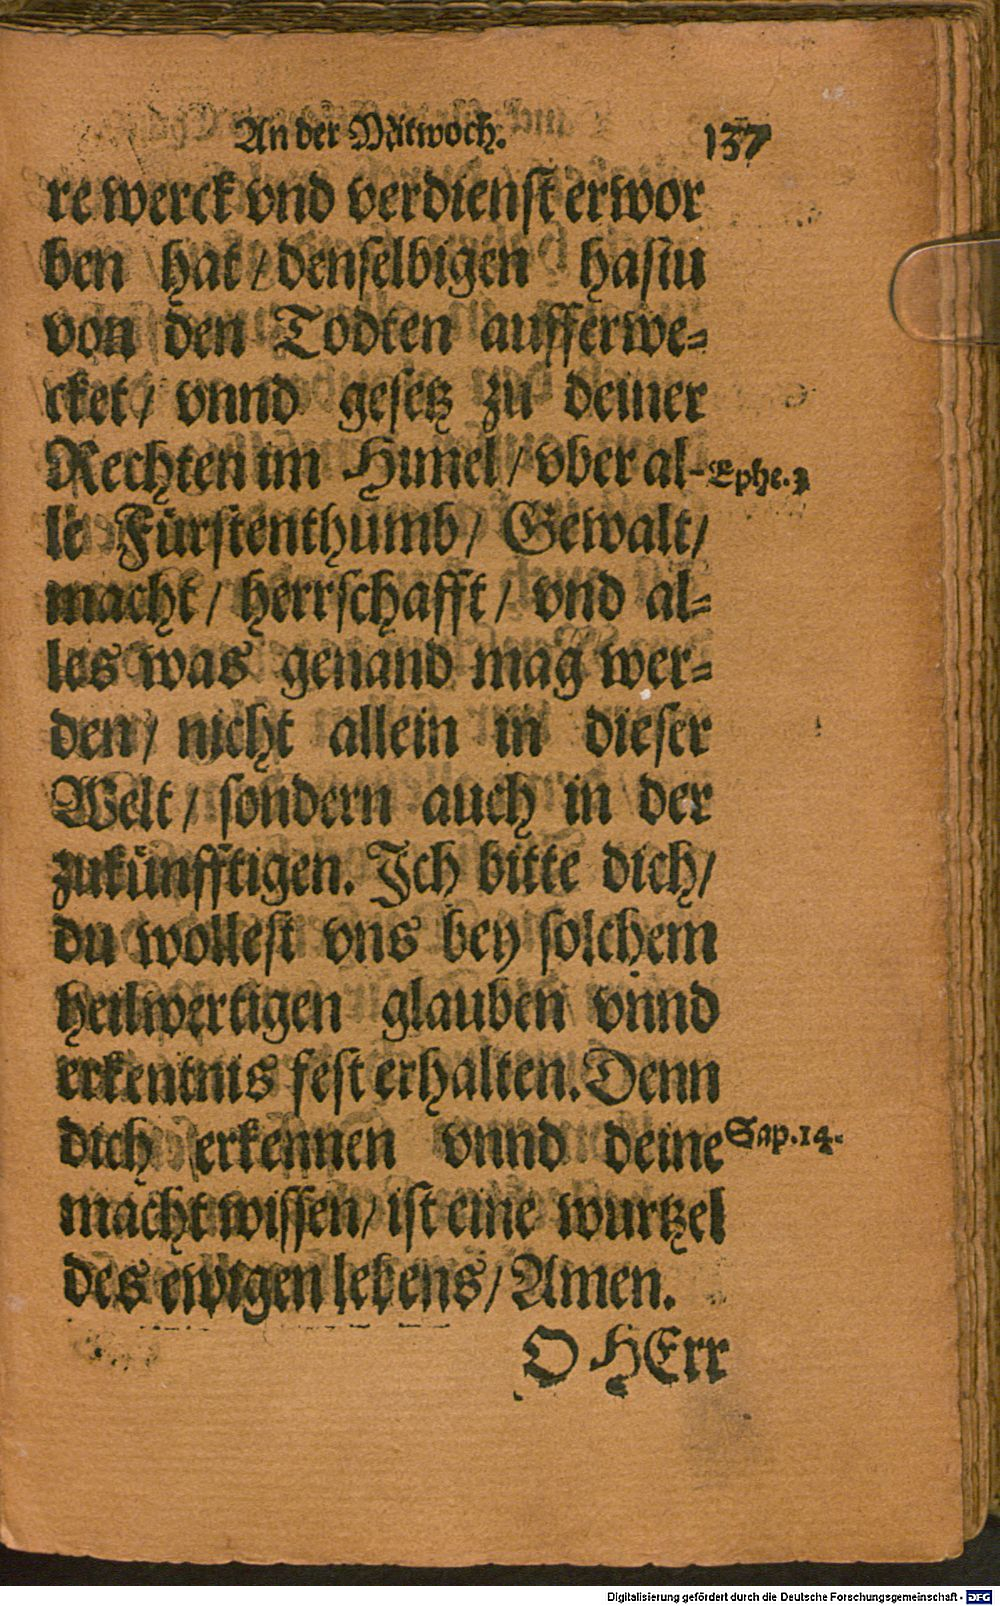 An der Mitwoch. 137
re werck vnd verdienst erwor
ben hat / denselbigen hastu
von den Todten aufferwe-
cket / vnnd gesetz zu deiner
Rechten im Himel / vber al-
Ephe. 3
le Fürstenthumb / Gewalt /
macht / herrschafft / vnd al-
les was genand mag wer-
den / nicht allein in dieser
Welt / sondern auch in der
zukünfftigen. Ich bitte dich /
du wollest vns bey solchem
heilwertigen glauben vnnd
erkentnis fest erhalten. Denn
dich erkennen vnnd deine
Sap. 14.
macht wissen / ist eine wurtzel
des ewigen lebens / Amen.
O HErr
Digitalisierung gefördert durch die Deutsche Forschungsgemeinschaft - DFG